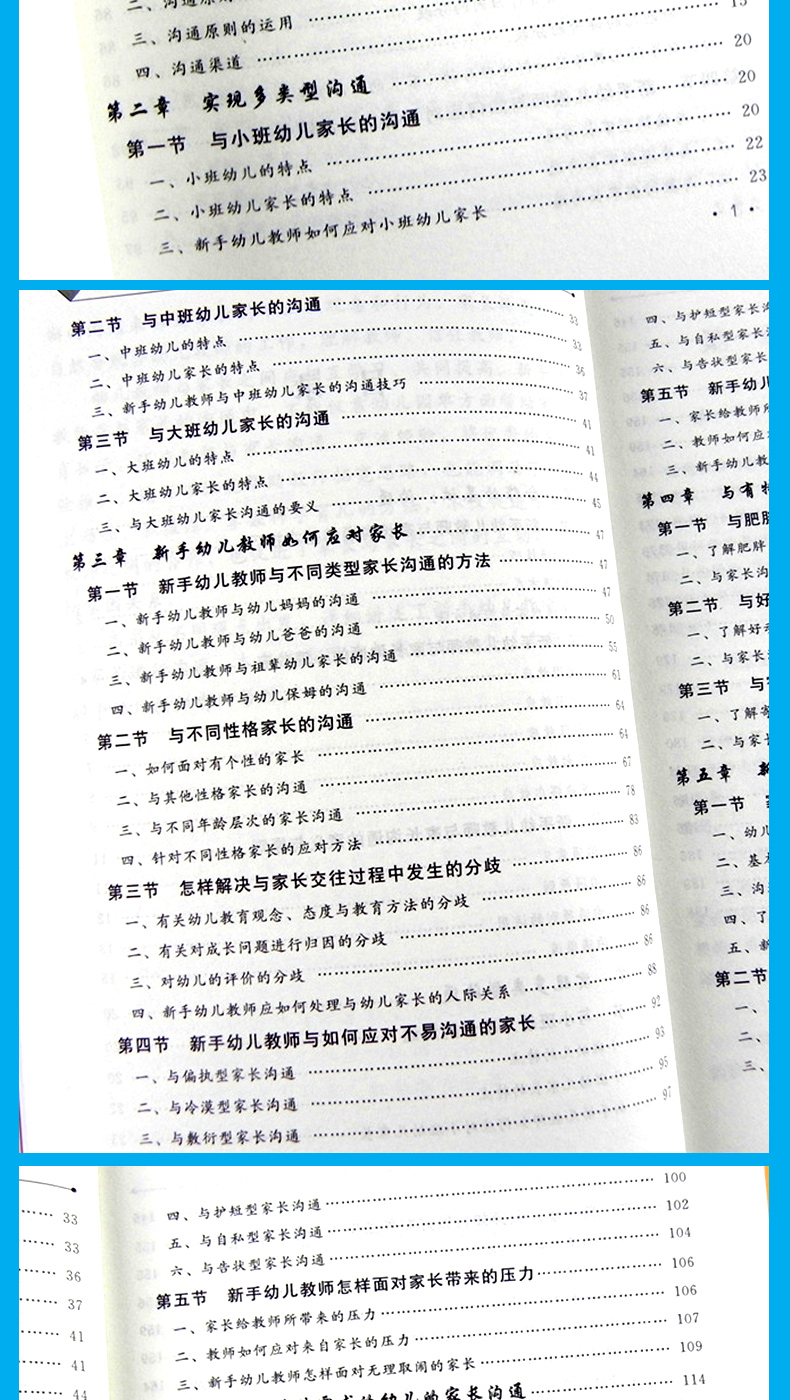 二、沟通原则
三、沟通原则的运用 …… 15
四、沟通渠道 …… 20
第二章 实现多类型沟通 …… 20
第一节 与小班幼儿家长的沟通 …… 20
一、小班幼儿的特点 …… 22
二、小班幼儿家长的特点 …… 23
三、新手幼儿教师如何应对小班幼儿家长
· 1 ·
第二节 与中班幼儿家长的沟通 …… 33
一、中班幼儿的特点 …… 33
二、中班幼儿家长的特点 …… 36
三、新手幼儿教师与中班幼儿家长的沟通技巧 …… 37
第三节 与大班幼儿家长的沟通 …… 41
一、大班幼儿的特点 …… 41
二、大班幼儿家长的特点 …… 44
三、与大班幼儿家长沟通的要义 …… 45
第三章 新手幼儿教师如何应对家长 …… 47
第一节 新手幼儿教师与不同类型家长沟通的方法 …… 47
一、新手幼儿教师与幼儿妈妈的沟通 …… 47
二、新手幼儿教师与幼儿爸爸的沟通 …… 50
三、新手幼儿教师与祖辈幼儿家长的沟通 …… 55
四、新手幼儿教师与幼儿保姆的沟通 …… 61
第二节 与不同性格家长的沟通 …… 64
一、如何面对有个性的家长 …… 64
二、与其他性格家长的沟通 …… 67
三、与不同年龄层次的家长沟通 …… 78
四、针对不同性格家长的应对方法 …… 83
第三节 怎样解决与家长交往过程中发生的分歧 …… 86
一、有关幼儿教育观念、态度与教育方法的分歧 …… 86
二、有关对成长问题进行归因的分歧 …… 86
三、对幼儿的评价的分歧 …… 86
四、新手幼儿教师应如何处理与幼儿家长的人际关系 …… 88
第四节 新手幼儿教师与如何应对不易沟通的家长 …… 92
一、与偏执型家长沟通 …… 93
二、与冷漠型家长沟通 …… 95
三、与敷衍型家长沟通 …… 97
四、与护短型家长沟
五、与自私型家长
六、与告状型家长
第五节 新手幼儿
一、家长给教师所
二、教师如何应
三、新手幼儿教
第四章 与有特
第一节 与肥胖
一、了解肥胖
二、与家长沟
第二节 与好
一、了解好
二、与家长
第三节 与
一、了解寄
二、与家长
第五章 新
第一节
一、幼儿
二、基
三、沟
四、了
五、新
第二节
一、
二、
三、
33
33
36
37
41
41
44
四、与护短型家长沟通 …… 100
五、与自私型家长沟通 …… 102
六、与告状型家长沟通 …… 104
第五节 新手幼儿教师怎样面对家长带来的压力 …… 106
一、家长给教师所带来的压力 …… 106
二、教师如何应对来自家长的压力 …… 107
三、新手幼儿教师怎样面对无理取闹的家长 …… 109
幼儿的家长沟通 …… 114